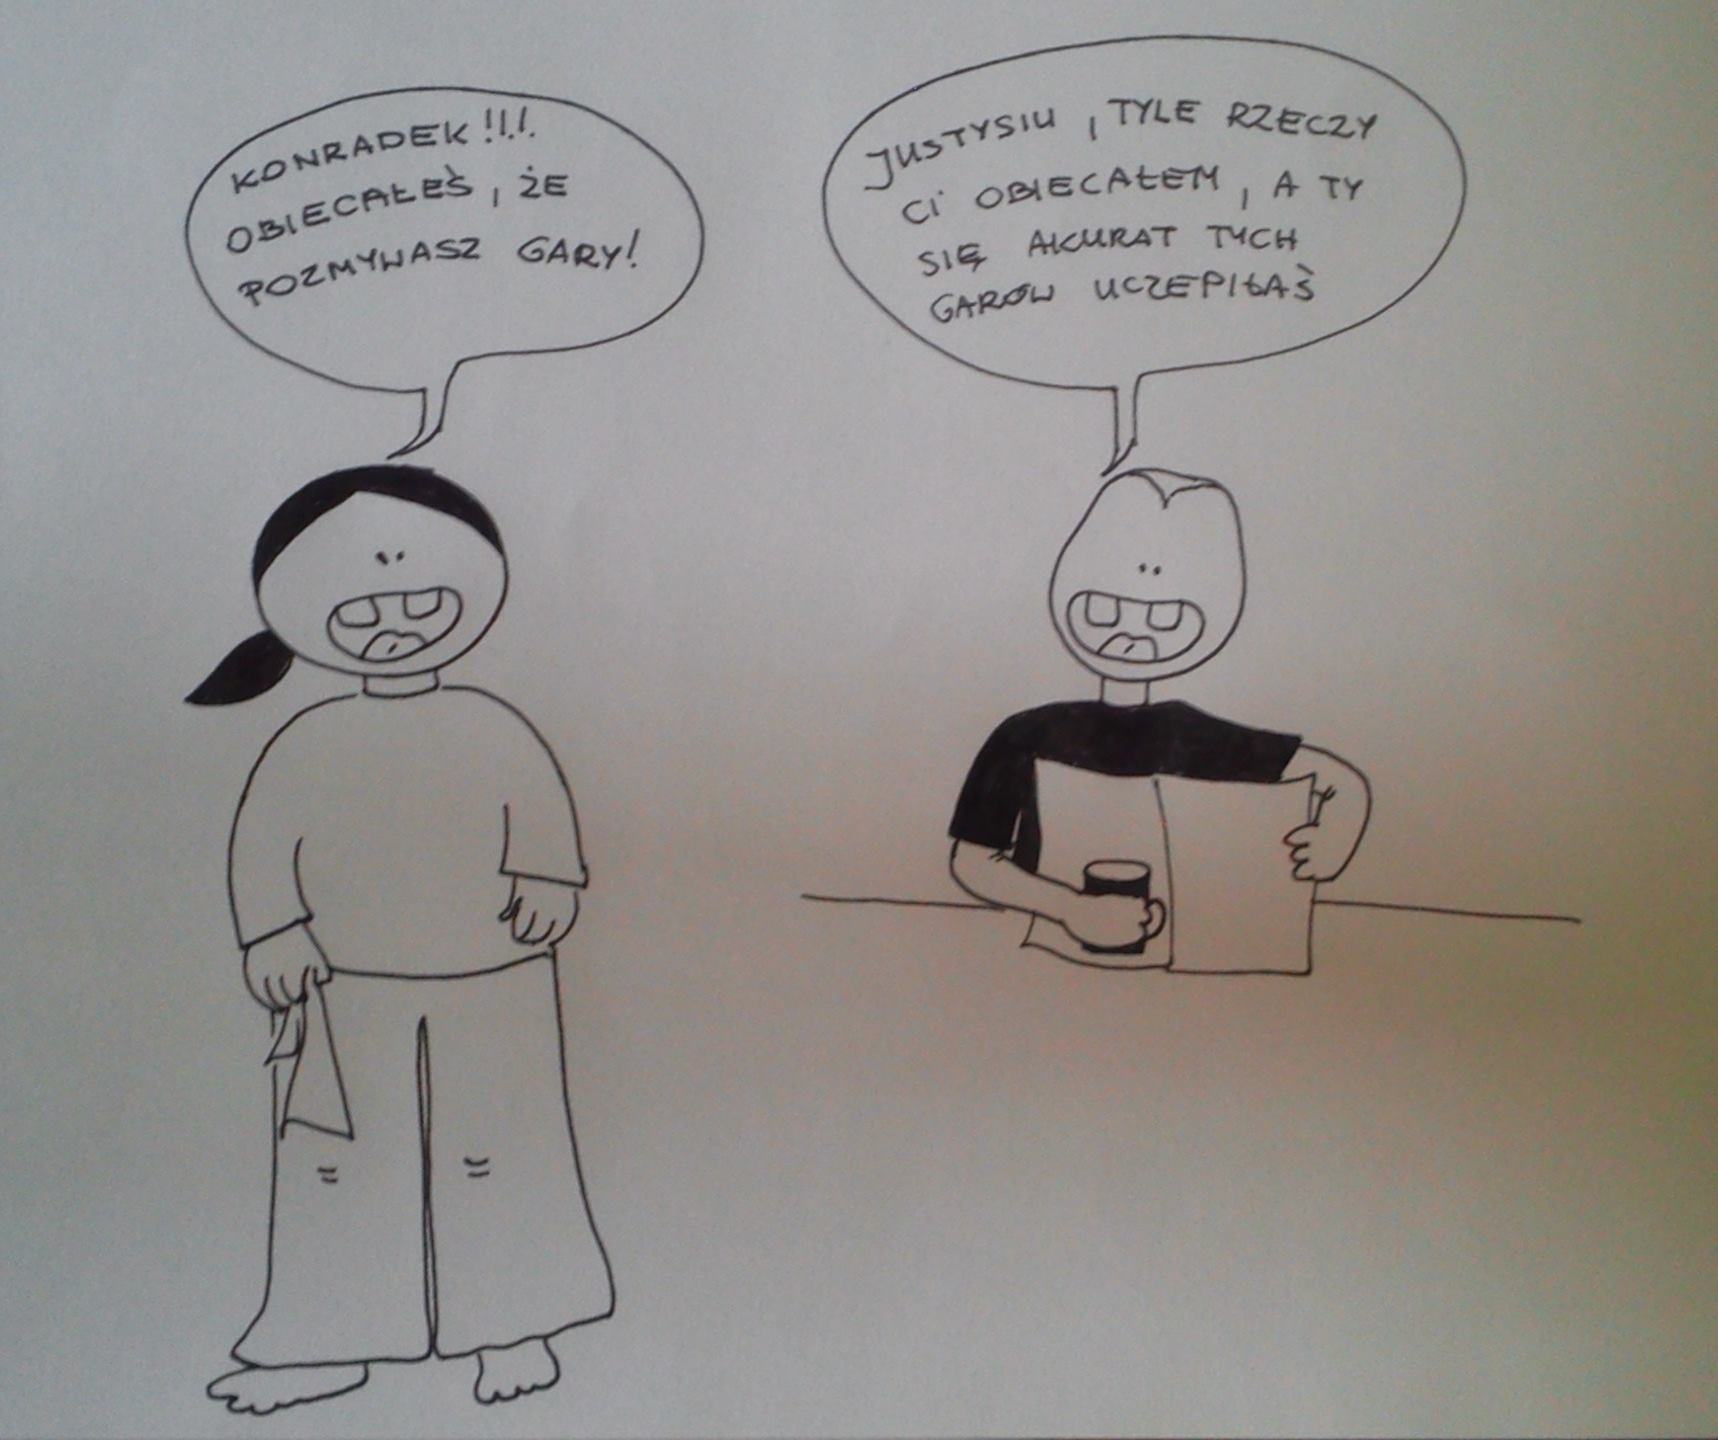 KONRADEK!!!!
OBIECAŁEŚ, ŻE
POZMYWASZ GARY!
JUSTYSIU, TYLE RZECZY
CI OBIECAŁEM, A TY
SIĘ AKURAT TYCH
GARÓW UCZEPIŁAŚ